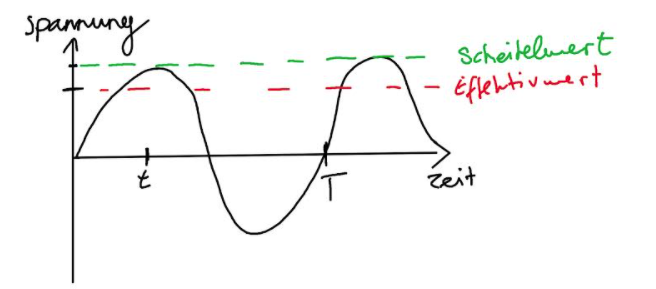 Spannung
Scheitelwert
Effektivwert
t
T
Zeit